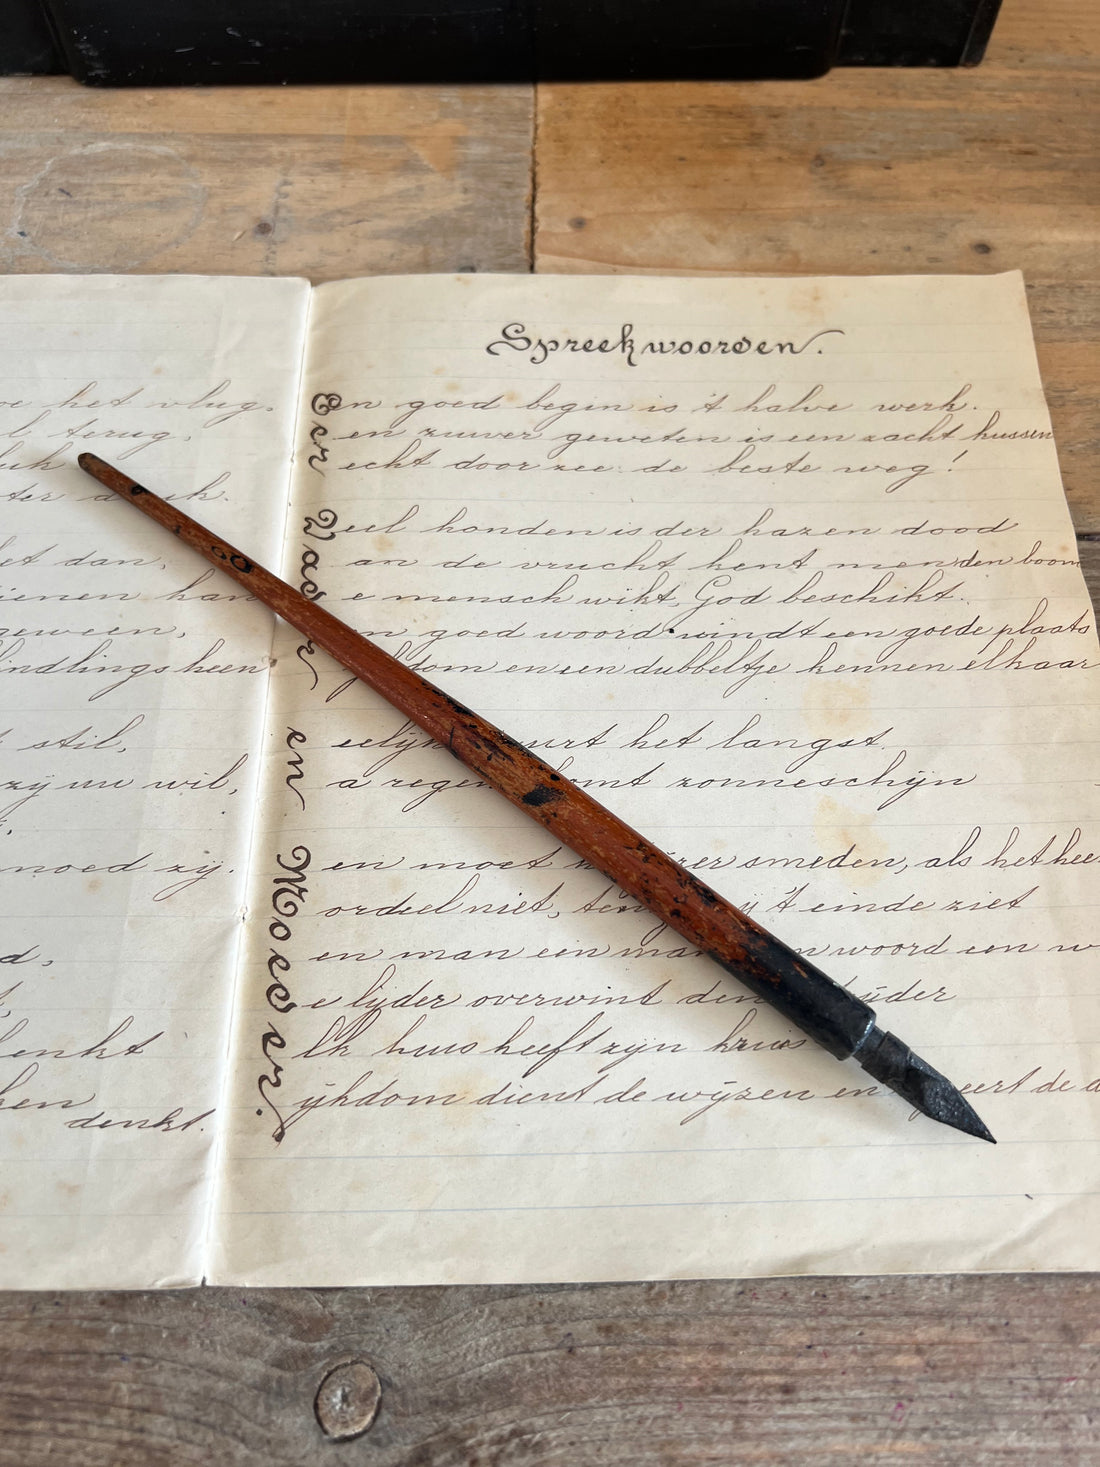 het vlug.
terug,
dan,
kan
geween,
heen
stil,
zij uw wil,
moed zij.
denkt.
Spreekwoorden.
Een goed begin is 't halve werk.
Een zuiver geweten is een zacht kussen
Recht door zee: de beste weg!
Veel honden is der hazen dood
aan de vrucht kent men den boom
de mensch wikt, God beschikt.
goed woord vindt een goede plaats
en een dubbeltje kennen elkaar
het langst.
na regen komt zonneschijn
Men moet ijzer smeden, als het
oordeel niet, 't einde ziet
een man een man woord een
de lijder overwint den
elk huis heeft zijn kruis
rijkdom dient de wijzen en de